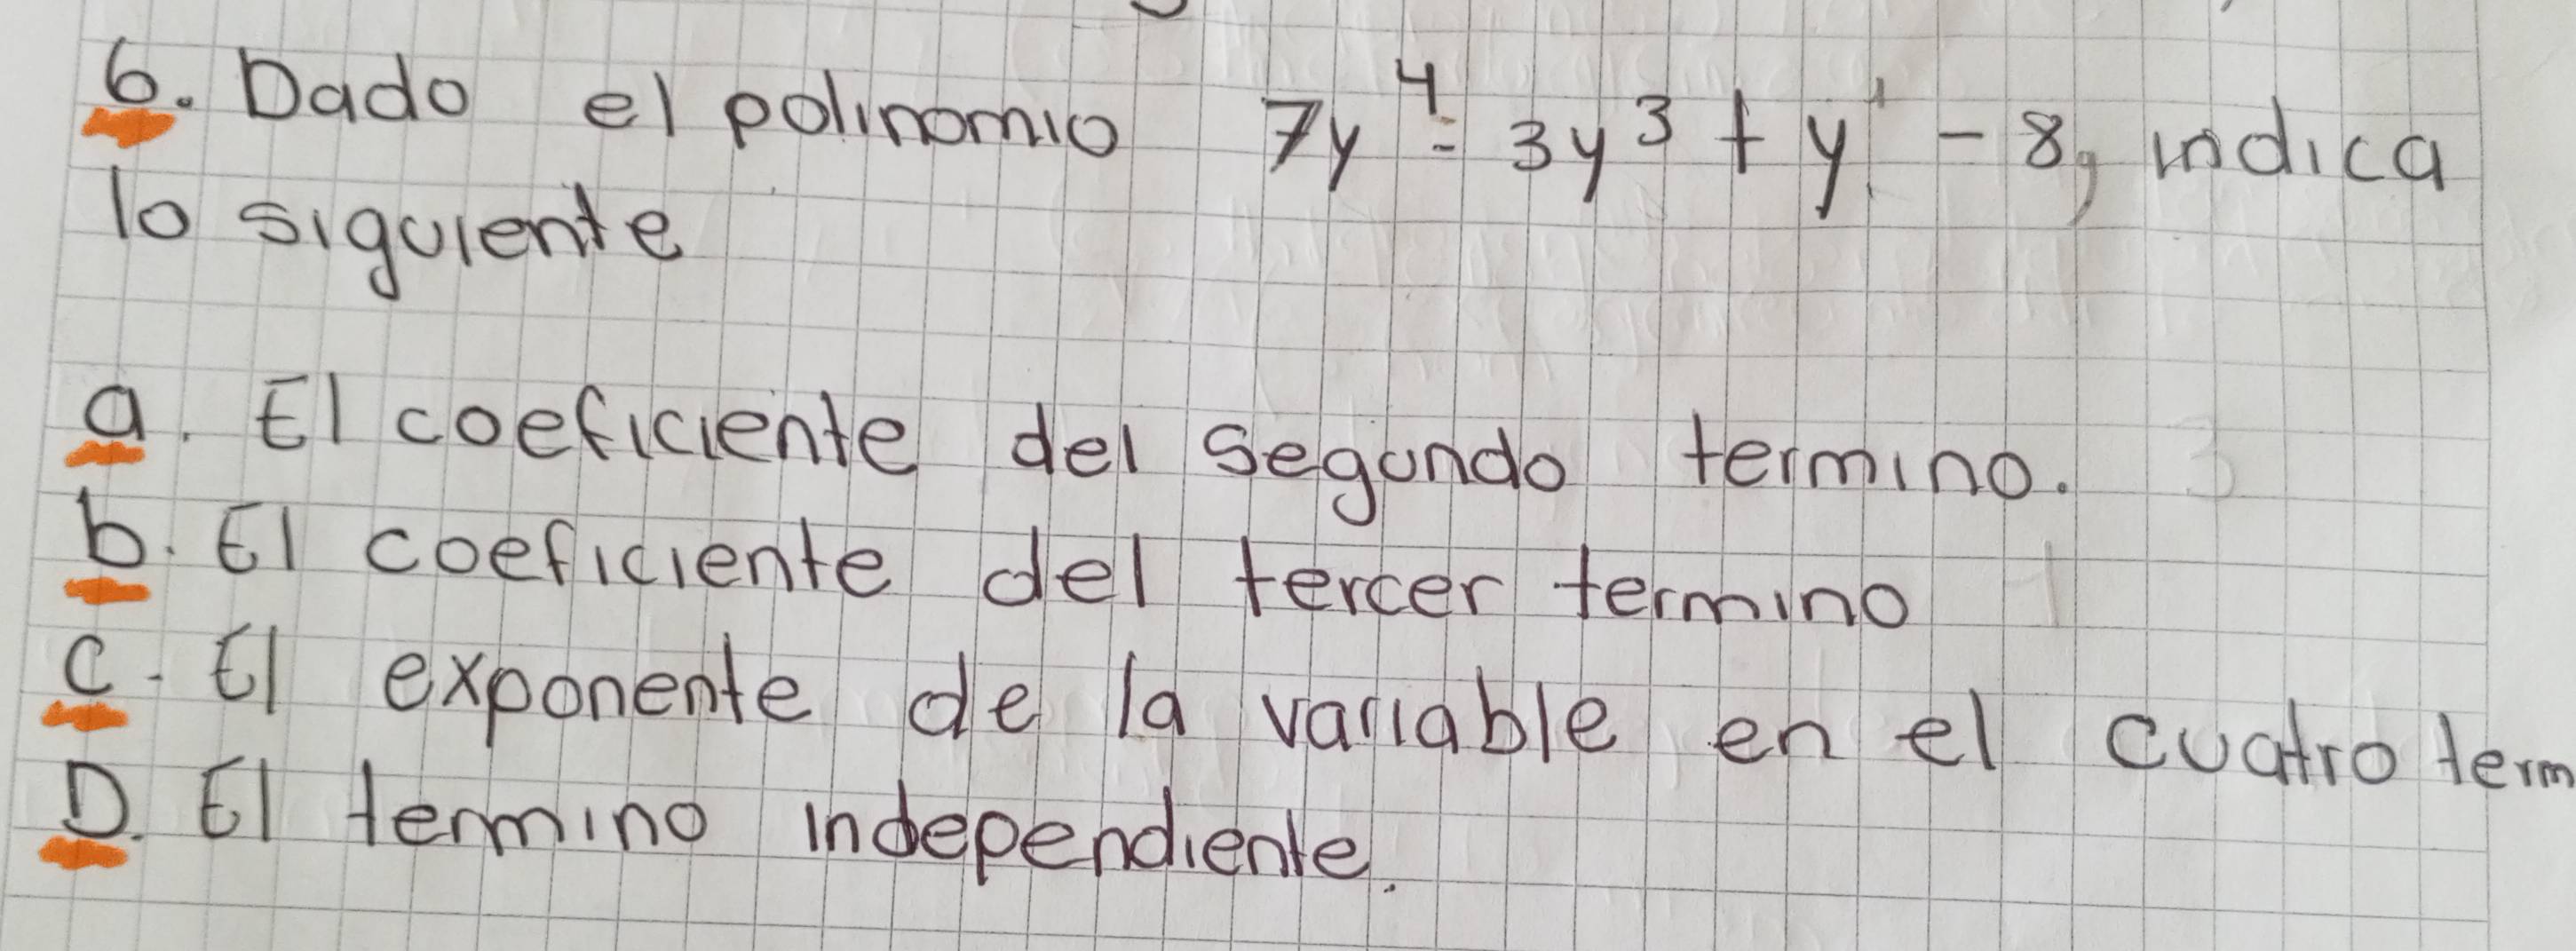 6. Dado el polinomio 7y⁴ - 3y³ + y¹ - 8, indica
lo siguiente
a. El coeficiente del segundo termino. 3
b. El coeficiente del tercer termino 1
C. El exponente de la variable en el cuatro term
D. El termino independiente.